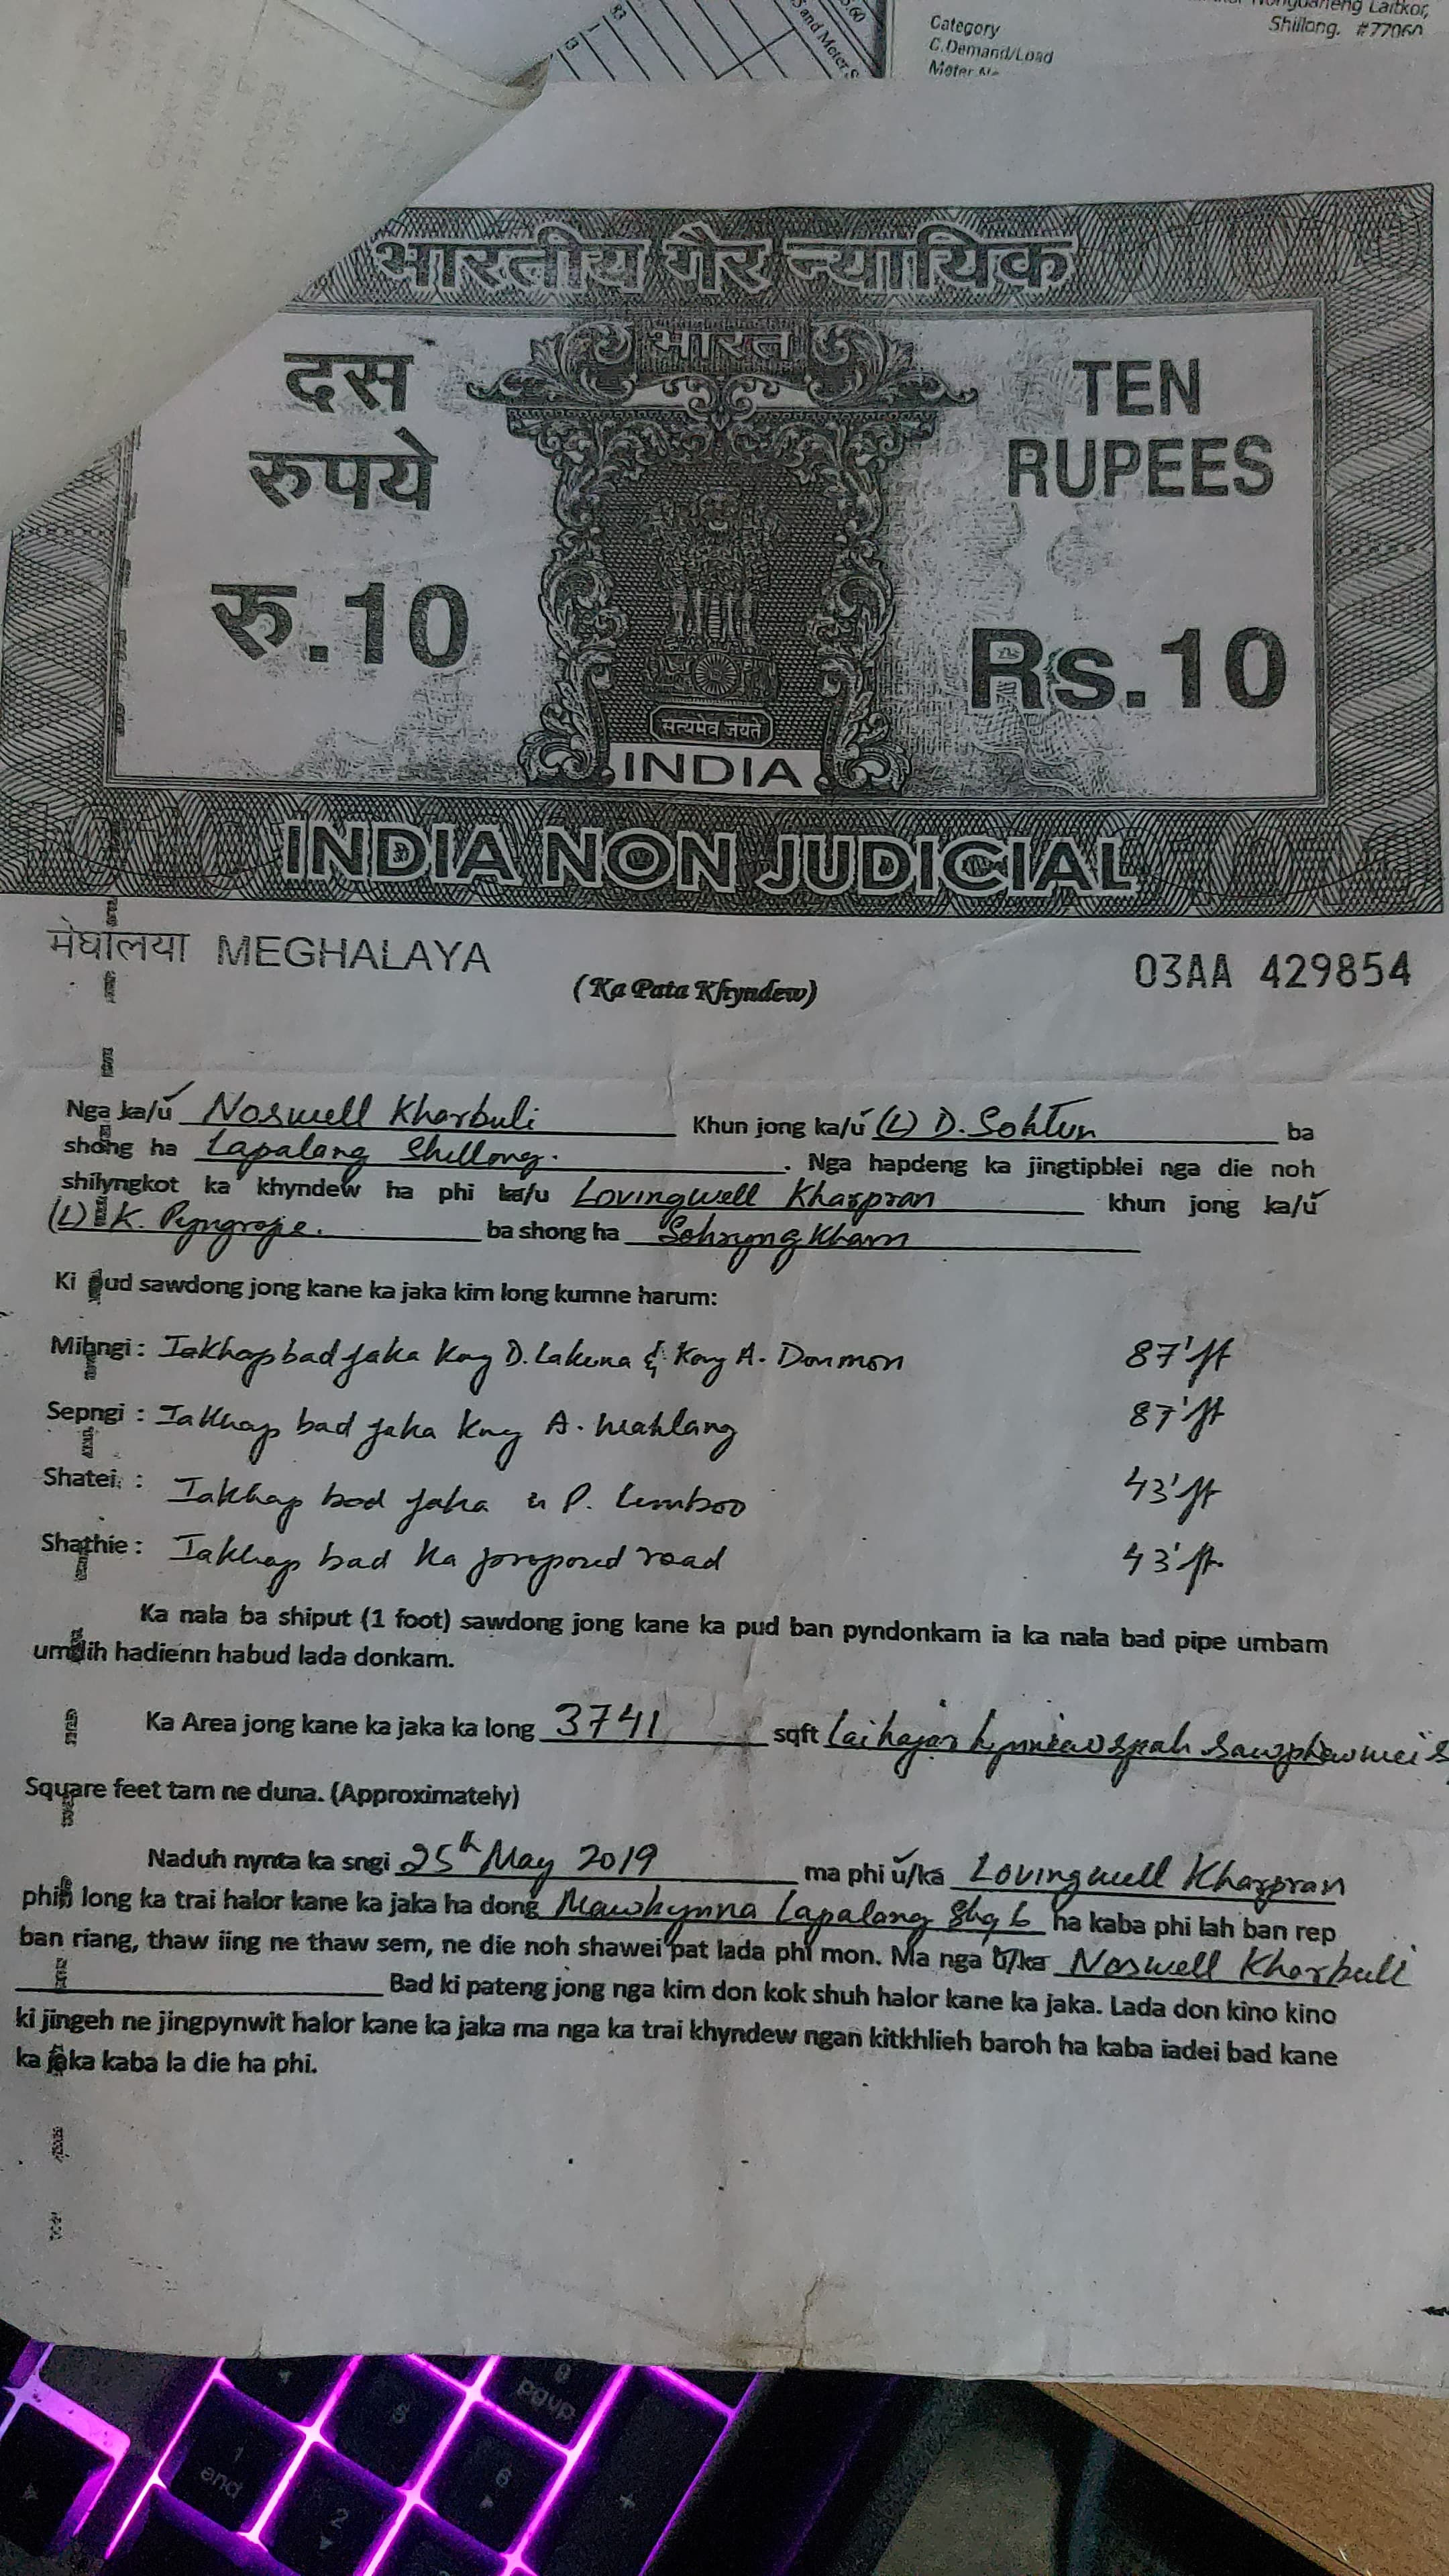 83
1
13
S and Meter S
5.60
Category
C.Demand/Load
Meter
Laitkor,
Shillong. #77060
भारतीय गैर न्यायिक
भारत
दस
रुपये
रु.10
TEN
RUPEES
Rs.10
सत्यमेव जयते
INDIA
INDIA NON JUDICIAL
मेघालया MEGHALAYA
03AA 429854
(Ka Pata Khyndew)
Nga ka/ú Noswell Kharbuli Khun jong ka/ú (L) D. Sohtun ba
shong ha Lapalang Shillong. . Nga hapdeng ka jingtipblei nga die noh
shilyngkot ka khyndew ha phi ka/u Lovingwell Kharpran khun jong ka/ú
(L) K. Pyngrope. ba shong ha Sohryngkham
Ki pud sawdong jong kane ka jaka kim long kumne harum:
Mihngi : Iakhap bad jaka Kong D. Lakuna & Kong A. Donmon 87'ft
Sepngi : Iakhap bad jaka Kong A. Wahlang 87'ft
Shatei : Iakhap bad jaka u P. Limboo 43'ft
Shathie : Iakhap bad ka proposed road 43'ft
Ka nala ba shiput (1 foot) sawdong jong kane ka pud ban pyndonkam ia ka nala bad pipe umbam
umdih hadienn habud lada donkam.
Ka Area jong kane ka jaka ka long 3741 sqft Laihajar hynniewspah sawphewwei
Square feet tam ne duna. (Approximately)
Naduh nynta ka sngi 25th May 2019 ma phi ú/ka Lovingwell Kharpran
phin long ka trai halor kane ka jaka ha dong Mawkynna Lapalang Shg 6 ha kaba phi lah ban rep
ban riang, thaw iing ne thaw sem, ne die noh shawei pat lada phi mon. Ma nga ú/ka Noswell Kharbuli
Bad ki pateng jong nga kim don kok shuh halor kane ka jaka. Lada don kino kino
ki jingeh ne jingpynwit halor kane ka jaka ma nga ka trai khyndew ngan kitkhlieh baroh ha kaba iadei bad kane
ka jaka kaba la die ha phi.
9
pgup
1
end
2
6
+